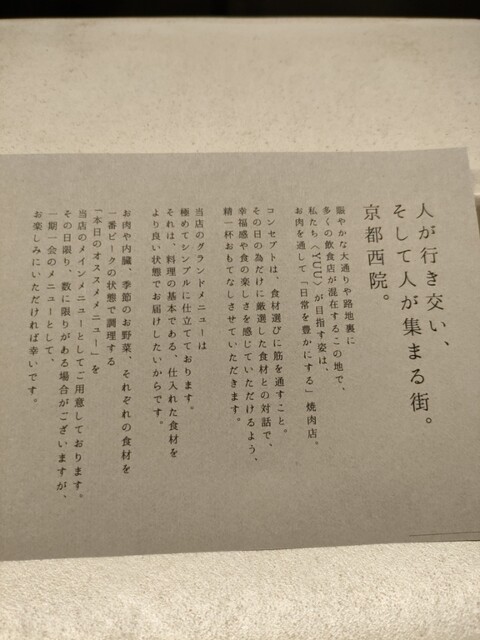 人が行き交い、
そして人が集まる街。
京都西院。
賑やかな大通りや路地裏に
多くの飲食店が混在するこの地で、
私たち〈YUU〉が目指す姿は、
お肉を通して「日常を豊かにする」焼肉店。
コンセプトは、食材選びに筋を通すこと。
その日の為だけに厳選した食材との対話で、
幸福感や食の楽しさを感じていただけるよう、
精一杯おもてなしさせていただきます。
当店のグランドメニューは
極めてシンプルに仕立てております。
それは、料理の基本である、仕入れた食材を
より良い状態でお届けしたいからです。
お肉や内臓、季節のお野菜、それぞれの食材を
一番ピークの状態で調理する
「本日のオススメメニュー」を
当店のメインメニューとしてご用意しております。
その日限り、数に限りがある場合がございますが、
一期一会のメニューとして、
お楽しみにいただければ幸いです。